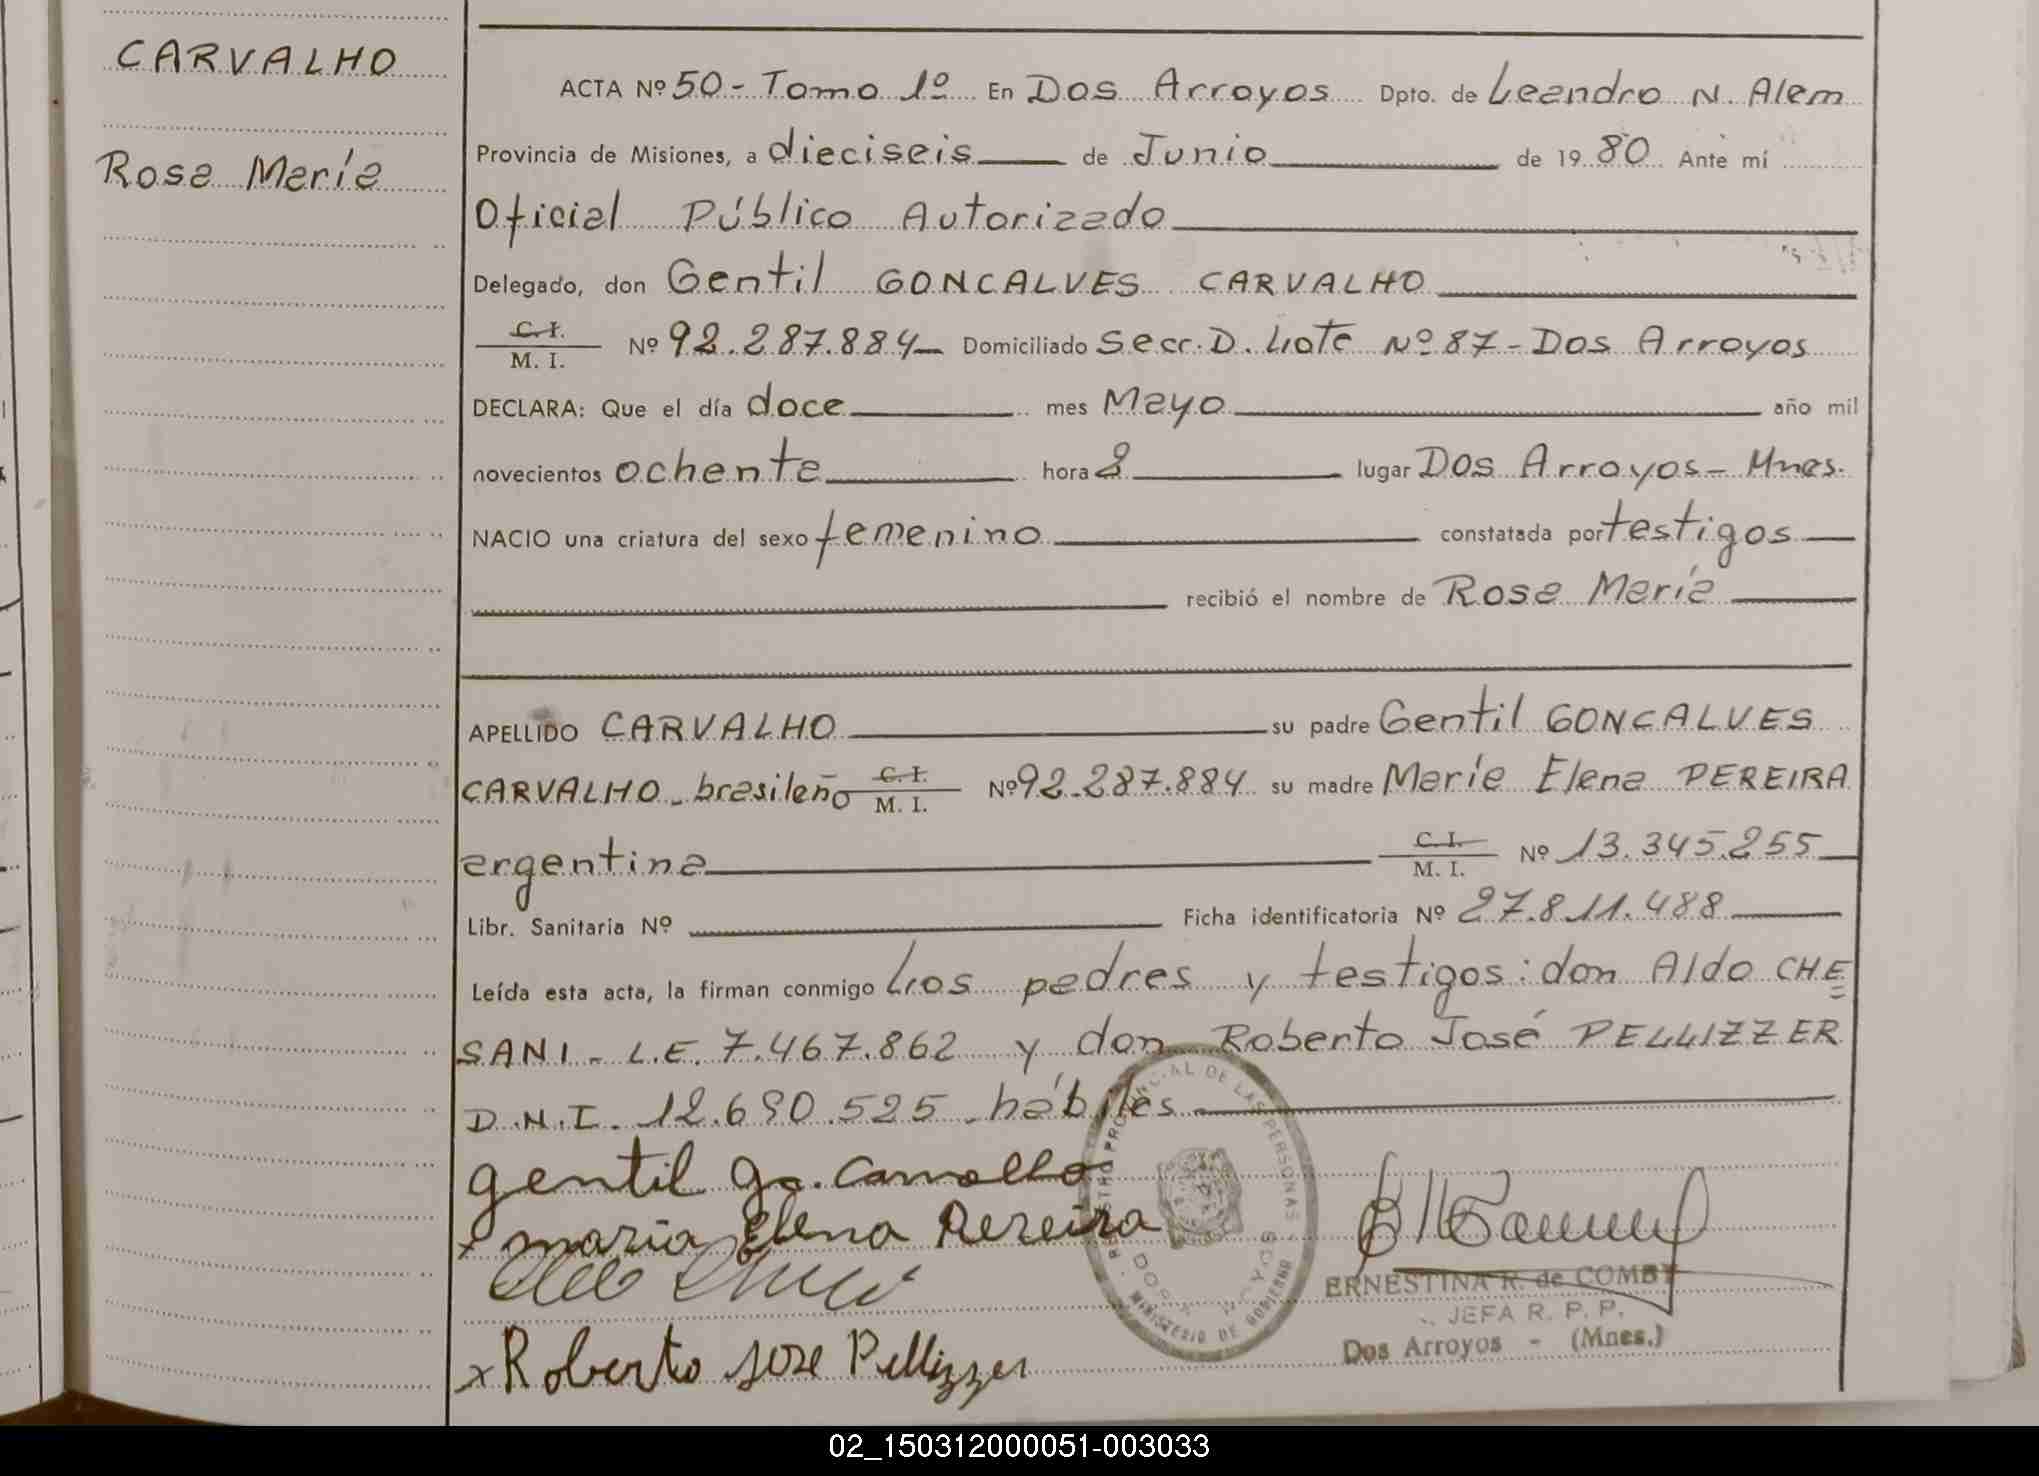 CARVALHO
Rosa María
ACTA Nº 50 - Tomo 1º En Dos Arroyos Dpto. de Leandro N. Alem
Provincia de Misiones, a dieciseis de Junio de 19 80 Ante mí
Oficial Público Autorizado
Delegado, don Gentil GONCALVES CARVALHO
C. I. / M. I. Nº 92.287.884 Domiciliado Secc. D. Lote Nº 87 - Dos Arroyos
DECLARA: Que el día doce mes Mayo año mil
novecientos ochenta hora 8 lugar Dos Arroyos - Mnes.
NACIO una criatura del sexo femenino constatada por testigos
recibió el nombre de Rosa María
APELLIDO CARVALHO su padre Gentil GONCALVES
CARVALHO - brasileño C. I. / M. I. Nº 92.287.884 su madre María Elena PEREIRA
argentina C. I. / M. I. Nº 13.345.255
Libr. Sanitaria Nº Ficha identificatoria Nº 27.811.488
Leída esta acta, la firman conmigo Los padres y testigos: don Aldo CHE
SANI - L.E. 7.467.862 y don Roberto José PELLIZZER
D.N.I. 12.690.525 - hábiles
gentil Go. Carvalho
x maria Elena Pereira
x Roberto Jose Pellizzer
REGISTRO PROVINCIAL DE LAS PERSONAS
DOS ARROYOS
MINISTERIO DE GOBIERNO
ERNESTINA R. de COMBY
JEFA R. P. P.
Dos Arroyos - (Mnes.)
02_150312000051-003033